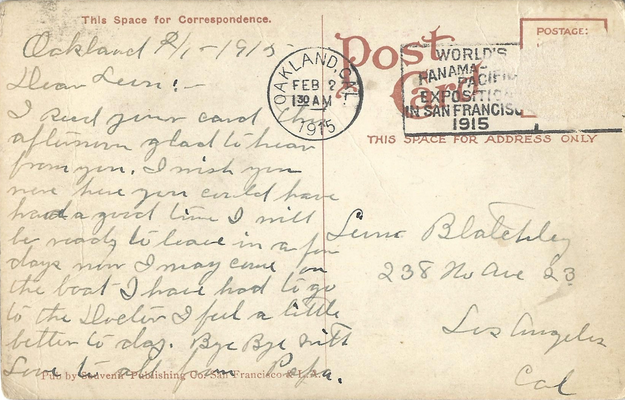 This Space for Correspondence.
Oakland 2/1-1915
Dear Lena:-
I Recd your card this
afternoon glad to hear
from you. I wish you
were here you could have
had a good time I will
be ready to leave in a few
days now I may come on
the boat I have had to go
to the Doctor I feel a little
better to day. Bye Bye with
Love to all from Papa.
Pub by Souvenir Publishing Co. San Francisco & L.A.
Post Card
OAKLAND, CAL.
FEB 2
130 AM
1915
WORLD'S
PANAMA-PACIFIC
EXPOSITION
IN SAN FRANCISCO
1915
POSTAGE:
THIS SPACE FOR ADDRESS ONLY
Lena Blatchley
238 No Ave 23
Los Angeles
Cal